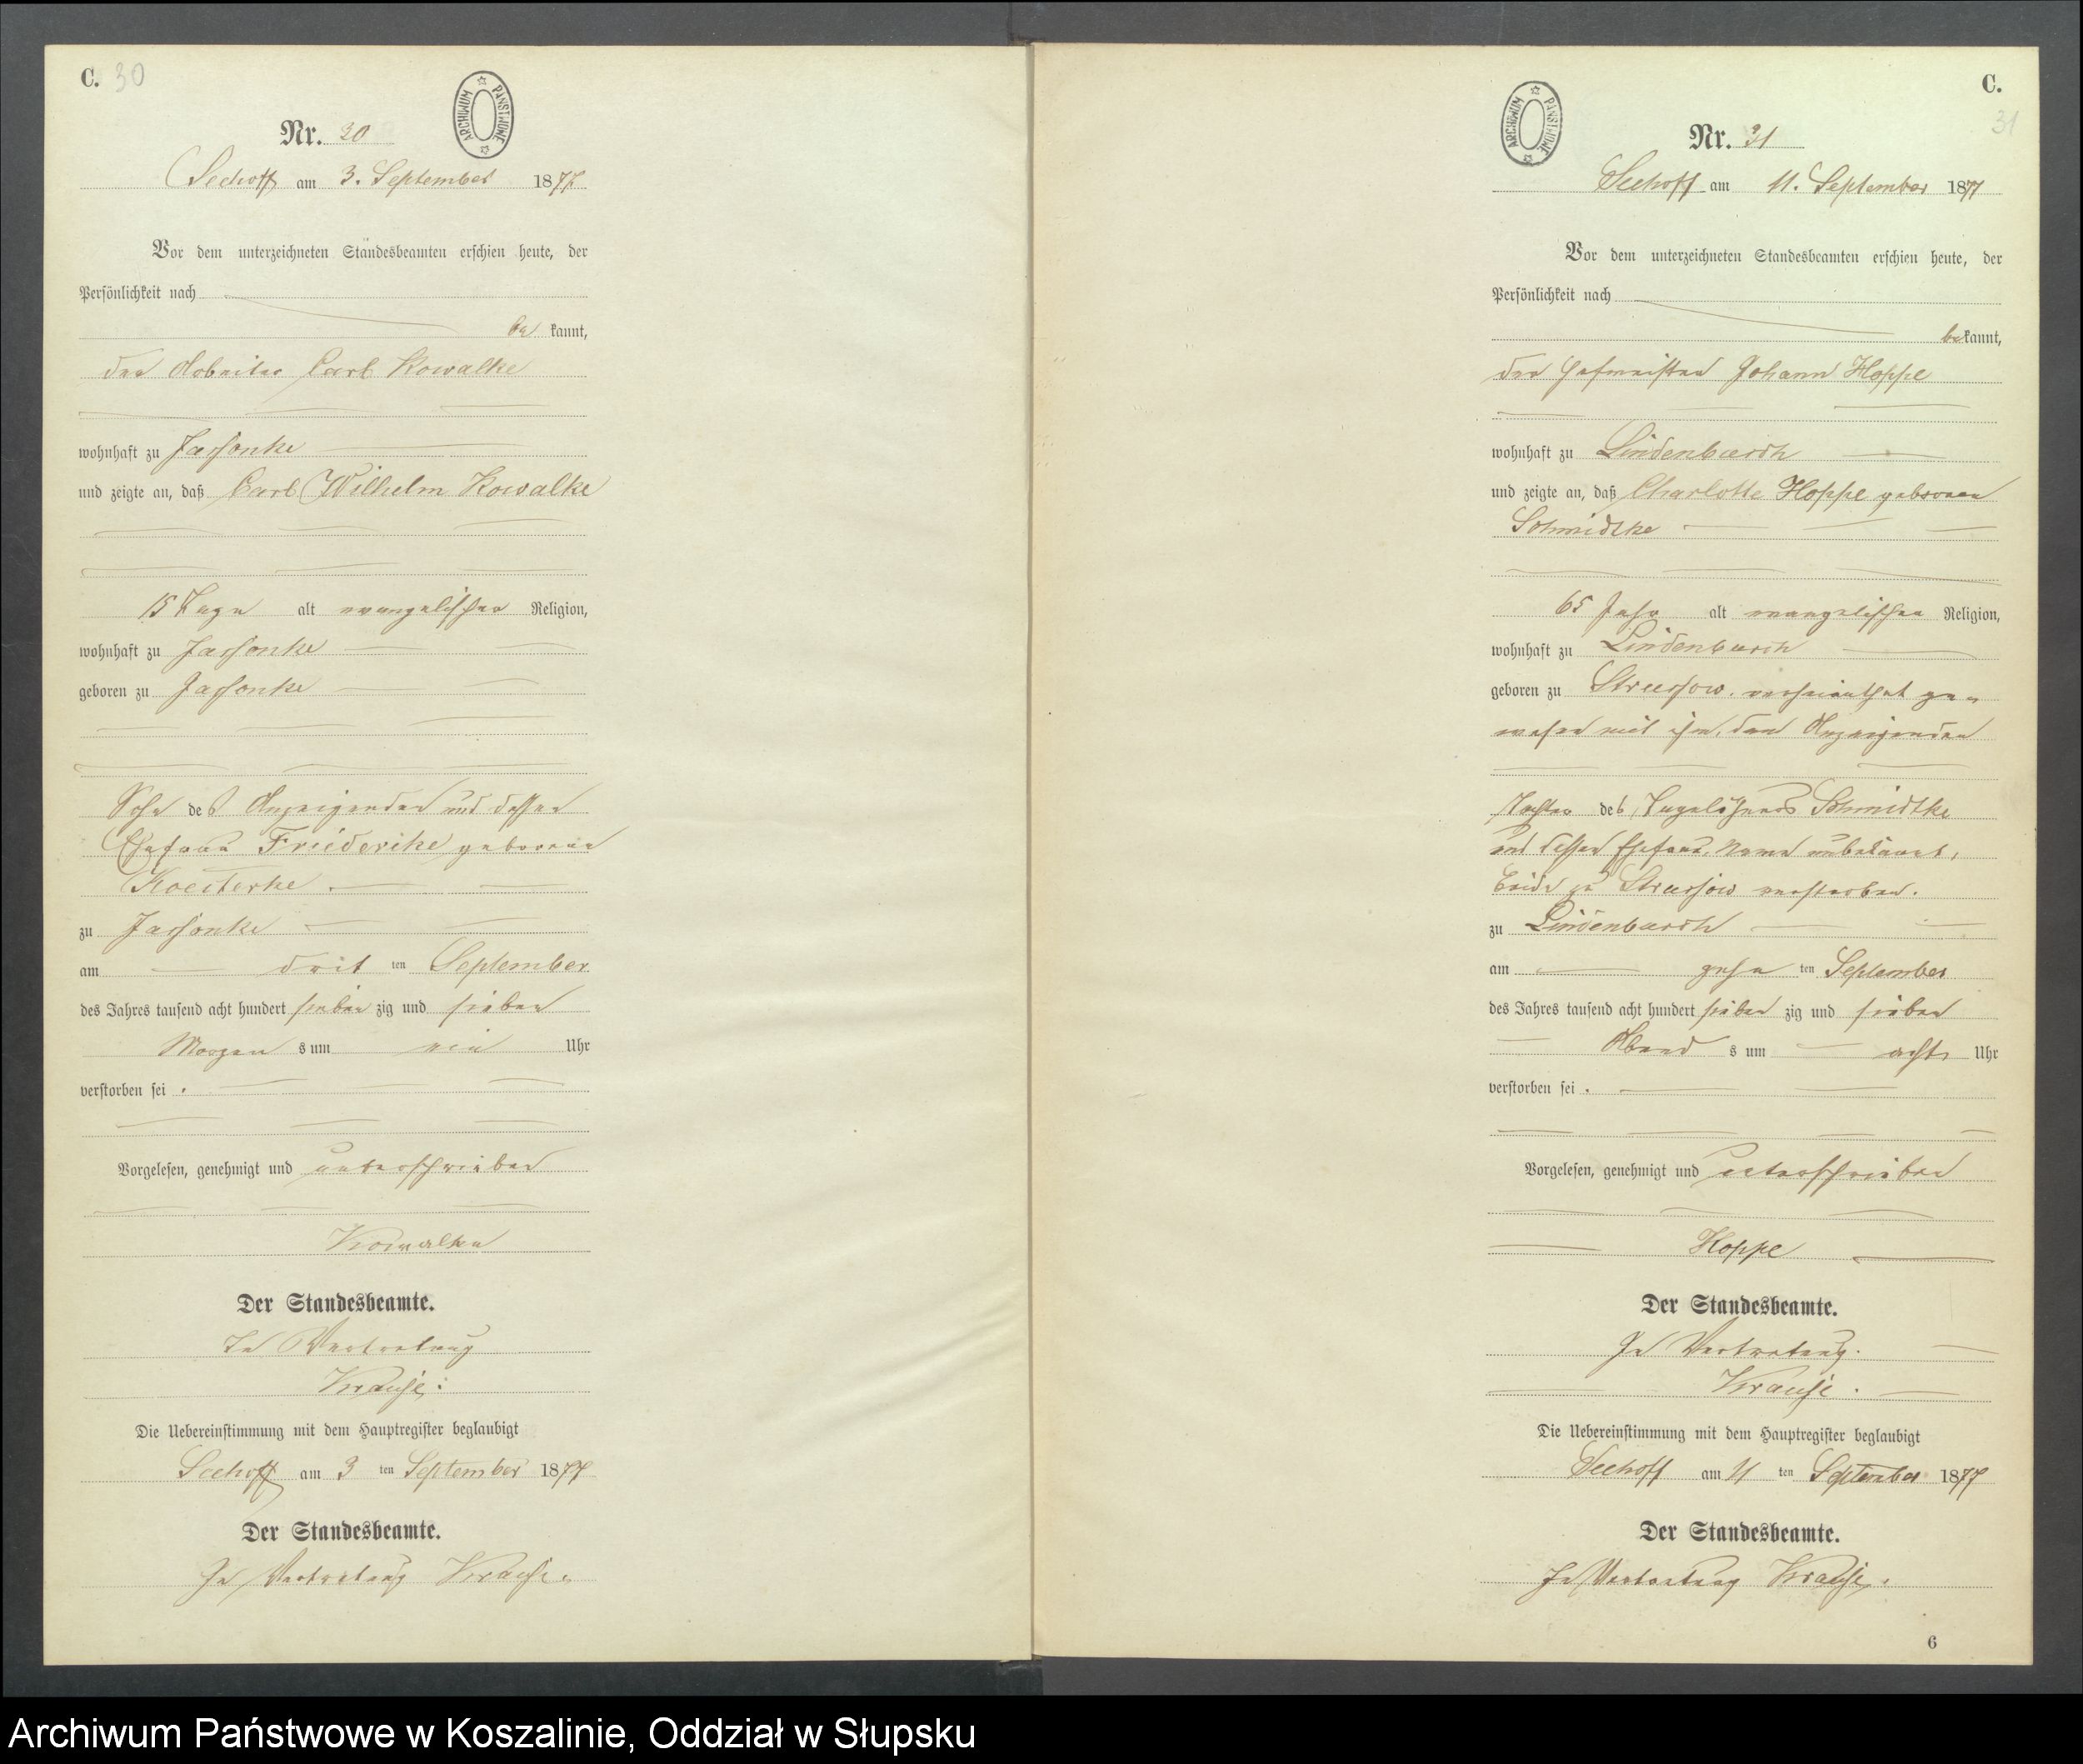 C. 30
ARCHIWUM PAŃSTWOWE
Nr. 30
Seehoff am 3. September 1877
Vor dem unterzeichneten Standesbeamten erschien heute, der
Persönlichkeit nach
be kannt,
der Arbeiter Carl Kowalke
wohnhaft zu Jassonke
und zeigte an, daß Carl Wilhelm Kowalke
15 Tage alt evangelischer Religion,
wohnhaft zu Jassonke
geboren zu Jassonke
Sohn des Anzeigenden und dessen
Ehefrau Friederike geborene
zu Jassonke
am drit ten September
des Jahres tausend acht hundert sieben zig und sieben
Morgen s um ein Uhr
verstorben sei .
Vorgelesen, genehmigt und unterschrieben
Kowalke
Der Standesbeamte.
In Vertretung
Krause.
Die Uebereinstimmung mit dem Hauptregister beglaubigt
Seehoff am 3 ten September 1877
Der Standesbeamte.
In Vertretung Krause.
C.
31
ARCHIWUM PAŃSTWOWE
Nr. 31
Seehoff am 11. September 1877
Vor dem unterzeichneten Standesbeamten erschien heute, der
Persönlichkeit nach
be kannt,
der Hofmeister Johann Hoppe
wohnhaft zu Lindenbusch
und zeigte an, daß Charlotte Hoppe geborene
Schmidtke
65 Jahr alt evangelischer Religion,
wohnhaft zu Lindenbusch
geboren zu Strussow, verheirathet ge-
wesen mit ihm, dem Anzeigenden
Tochter des Tagelöhners Schmidtke
und dessen Ehefrau, Name unbekannt,
beide zu Strussow verstorben.
zu Lindenbusch
am zehn ten September
des Jahres tausend acht hundert sieben zig und sieben
Abend s um acht Uhr
verstorben sei .
Vorgelesen, genehmigt und unterschrieben
Hoppe
Der Standesbeamte.
In Vertretung.
Krause.
Die Uebereinstimmung mit dem Hauptregister beglaubigt
Seehoff am 11 ten September 1877
Der Standesbeamte.
In Vertretung Krause.
6
Archiwum Państwowe w Koszalinie, Oddział w Słupsku